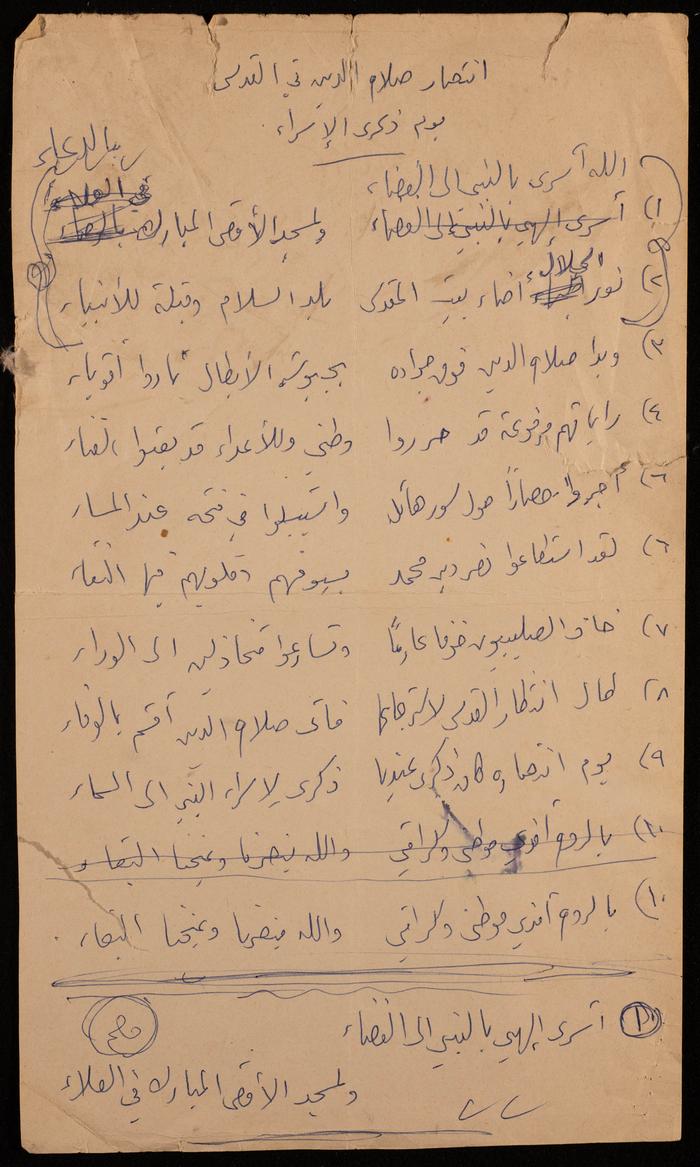 انتصار صلاح الدين في القدس
يوم ذكرى الإسراء
بالدعاء
الله أسرى بالنبي الى الفضاء
في العلاء
١) أسرى إلهي بالنبي إلى الفضاء ولمسجد الأقصى المبارك
الجلال
٢) نور أضاء بيت المقدس بلد السلام وقبلة للأنبياء
٣) وبدا صلاح الدين فوق جواده بجيوشه الأبطال ثاروا أقوياء
٤) راياتهم مرفوعة قد حرروا وطني وللأعداء قد
٦) أجروا حصاراً حول سور هائل في فتحه عند المساء
٦) لقد استطاعوا نصر دين محمد بسيوفهم وقلوبهم فيها النقاء
٧) خاف الصليبيون خوفا عارمًا وتسارعوا متخاذلين الى الوراء
٨) طال انتظار القدس لاسترجاعها فأتى صلاح الدين أقسم بالوفاء
٩) يوم انتصاره كان ذكرى عندنا ذكرى لإسراء النبي الى السماء
١٠) بالروح أفدي موطني وكرامتي والله ينصرنا ويمنحنا البقاء
١٠) بالروح أفدي موطني وكرامتي والله ينصرنا ويمنحنا البقاء
١ أسرى إلهي بالنبي الى الفضاء
صح
ولمسجد الأقصى المبارك في العلاء